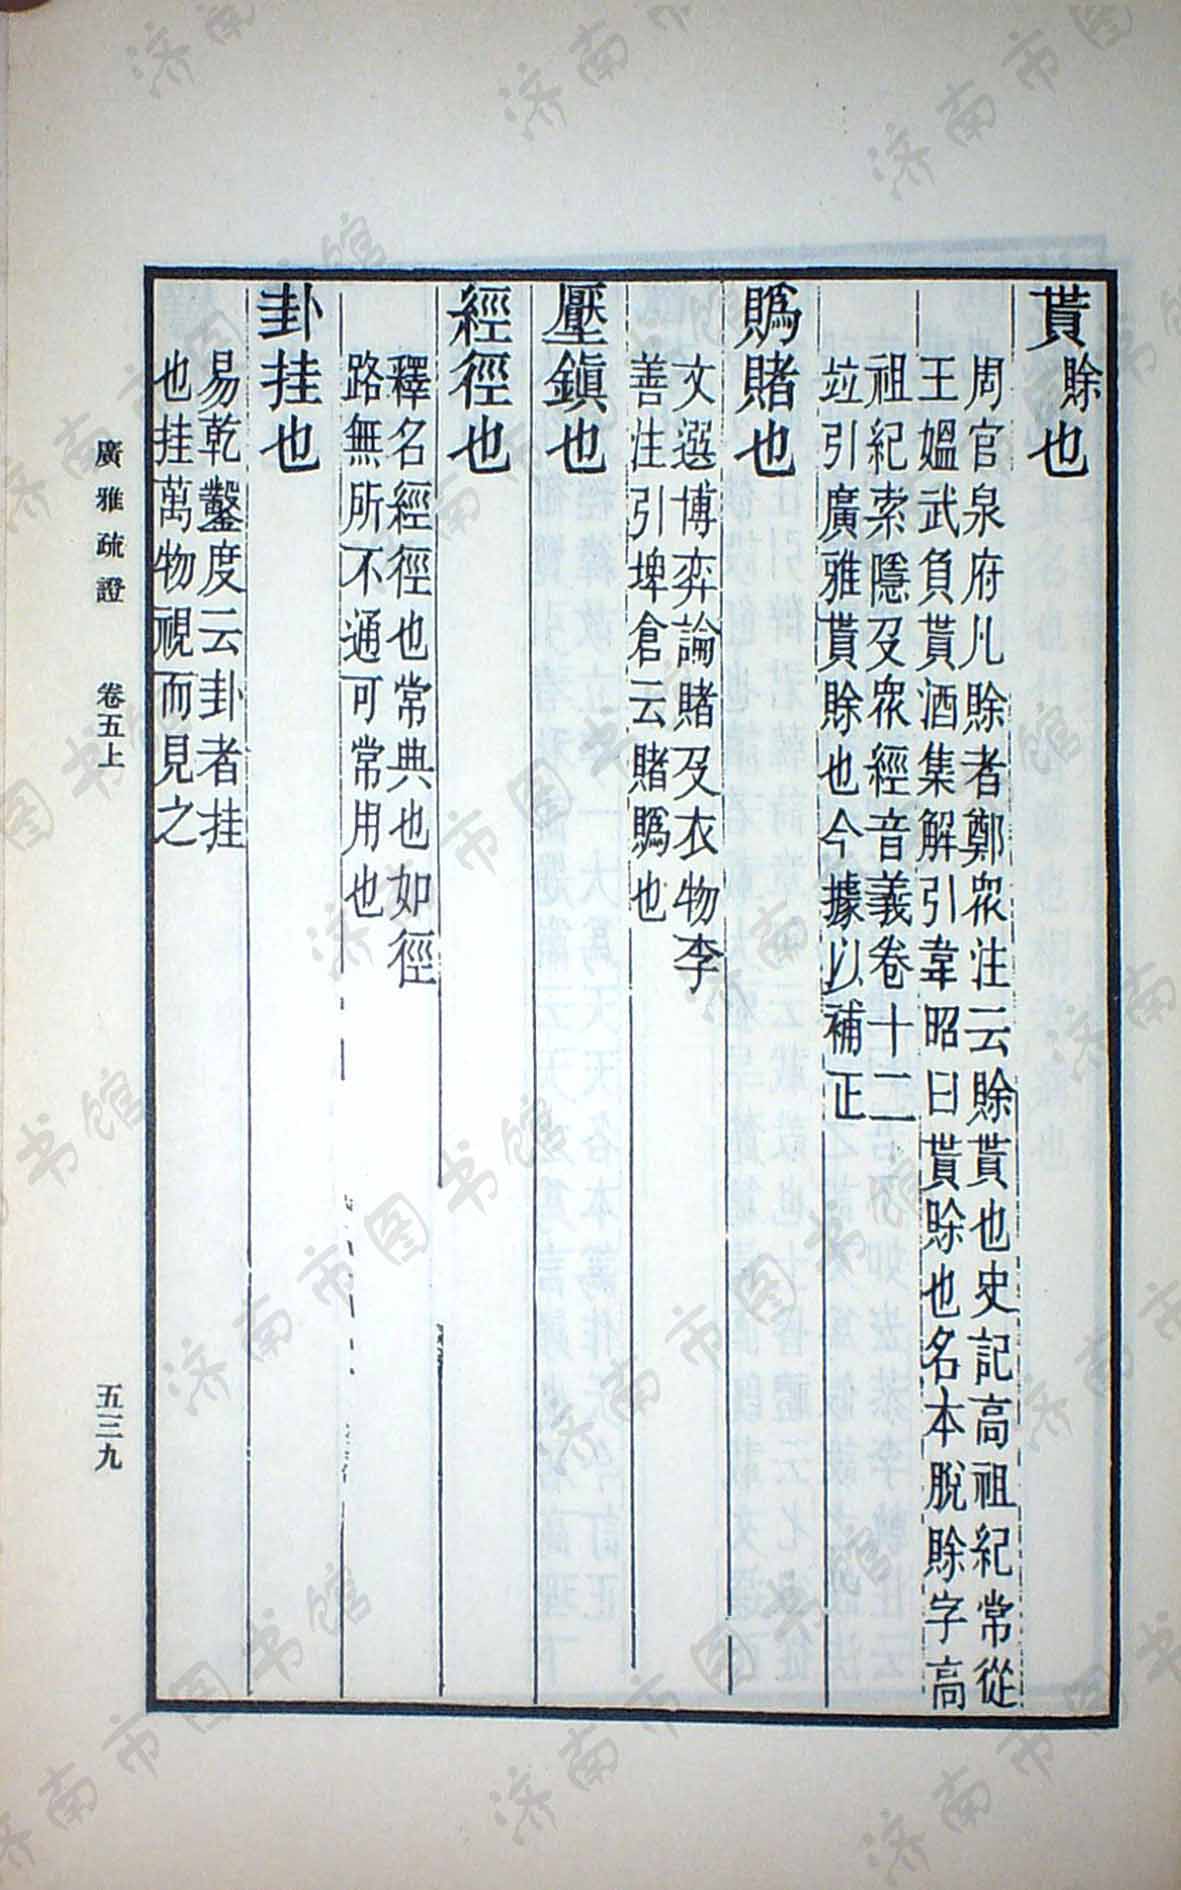 貰賒也
周官泉府凡賒者鄭衆注云賒貰也史記高祖紀常從
王媼武負貰酒集解引韋昭曰貰賒也各本脫賒字高
祖紀索隱及衆經音義卷十二
竝引廣雅貰賒也今據以補正
賭也
文選博弈論賭及衣物李
善注引埤倉云賭也
壓鎮也
經徑也
釋名經徑也常典也如徑
路無所不通可常用也
卦挂也
易乾鑿度云卦者挂
也挂萬物視而見之
廣雅疏證 卷五上
五三九
济南市图书馆